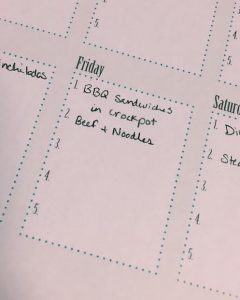 5.
Friday
1. BBQ Sandwiches
in crockpot
2. Beef + Noodles
3.
4.
5.
Saturd
1. Di
2. Stea
3.
4.
5.